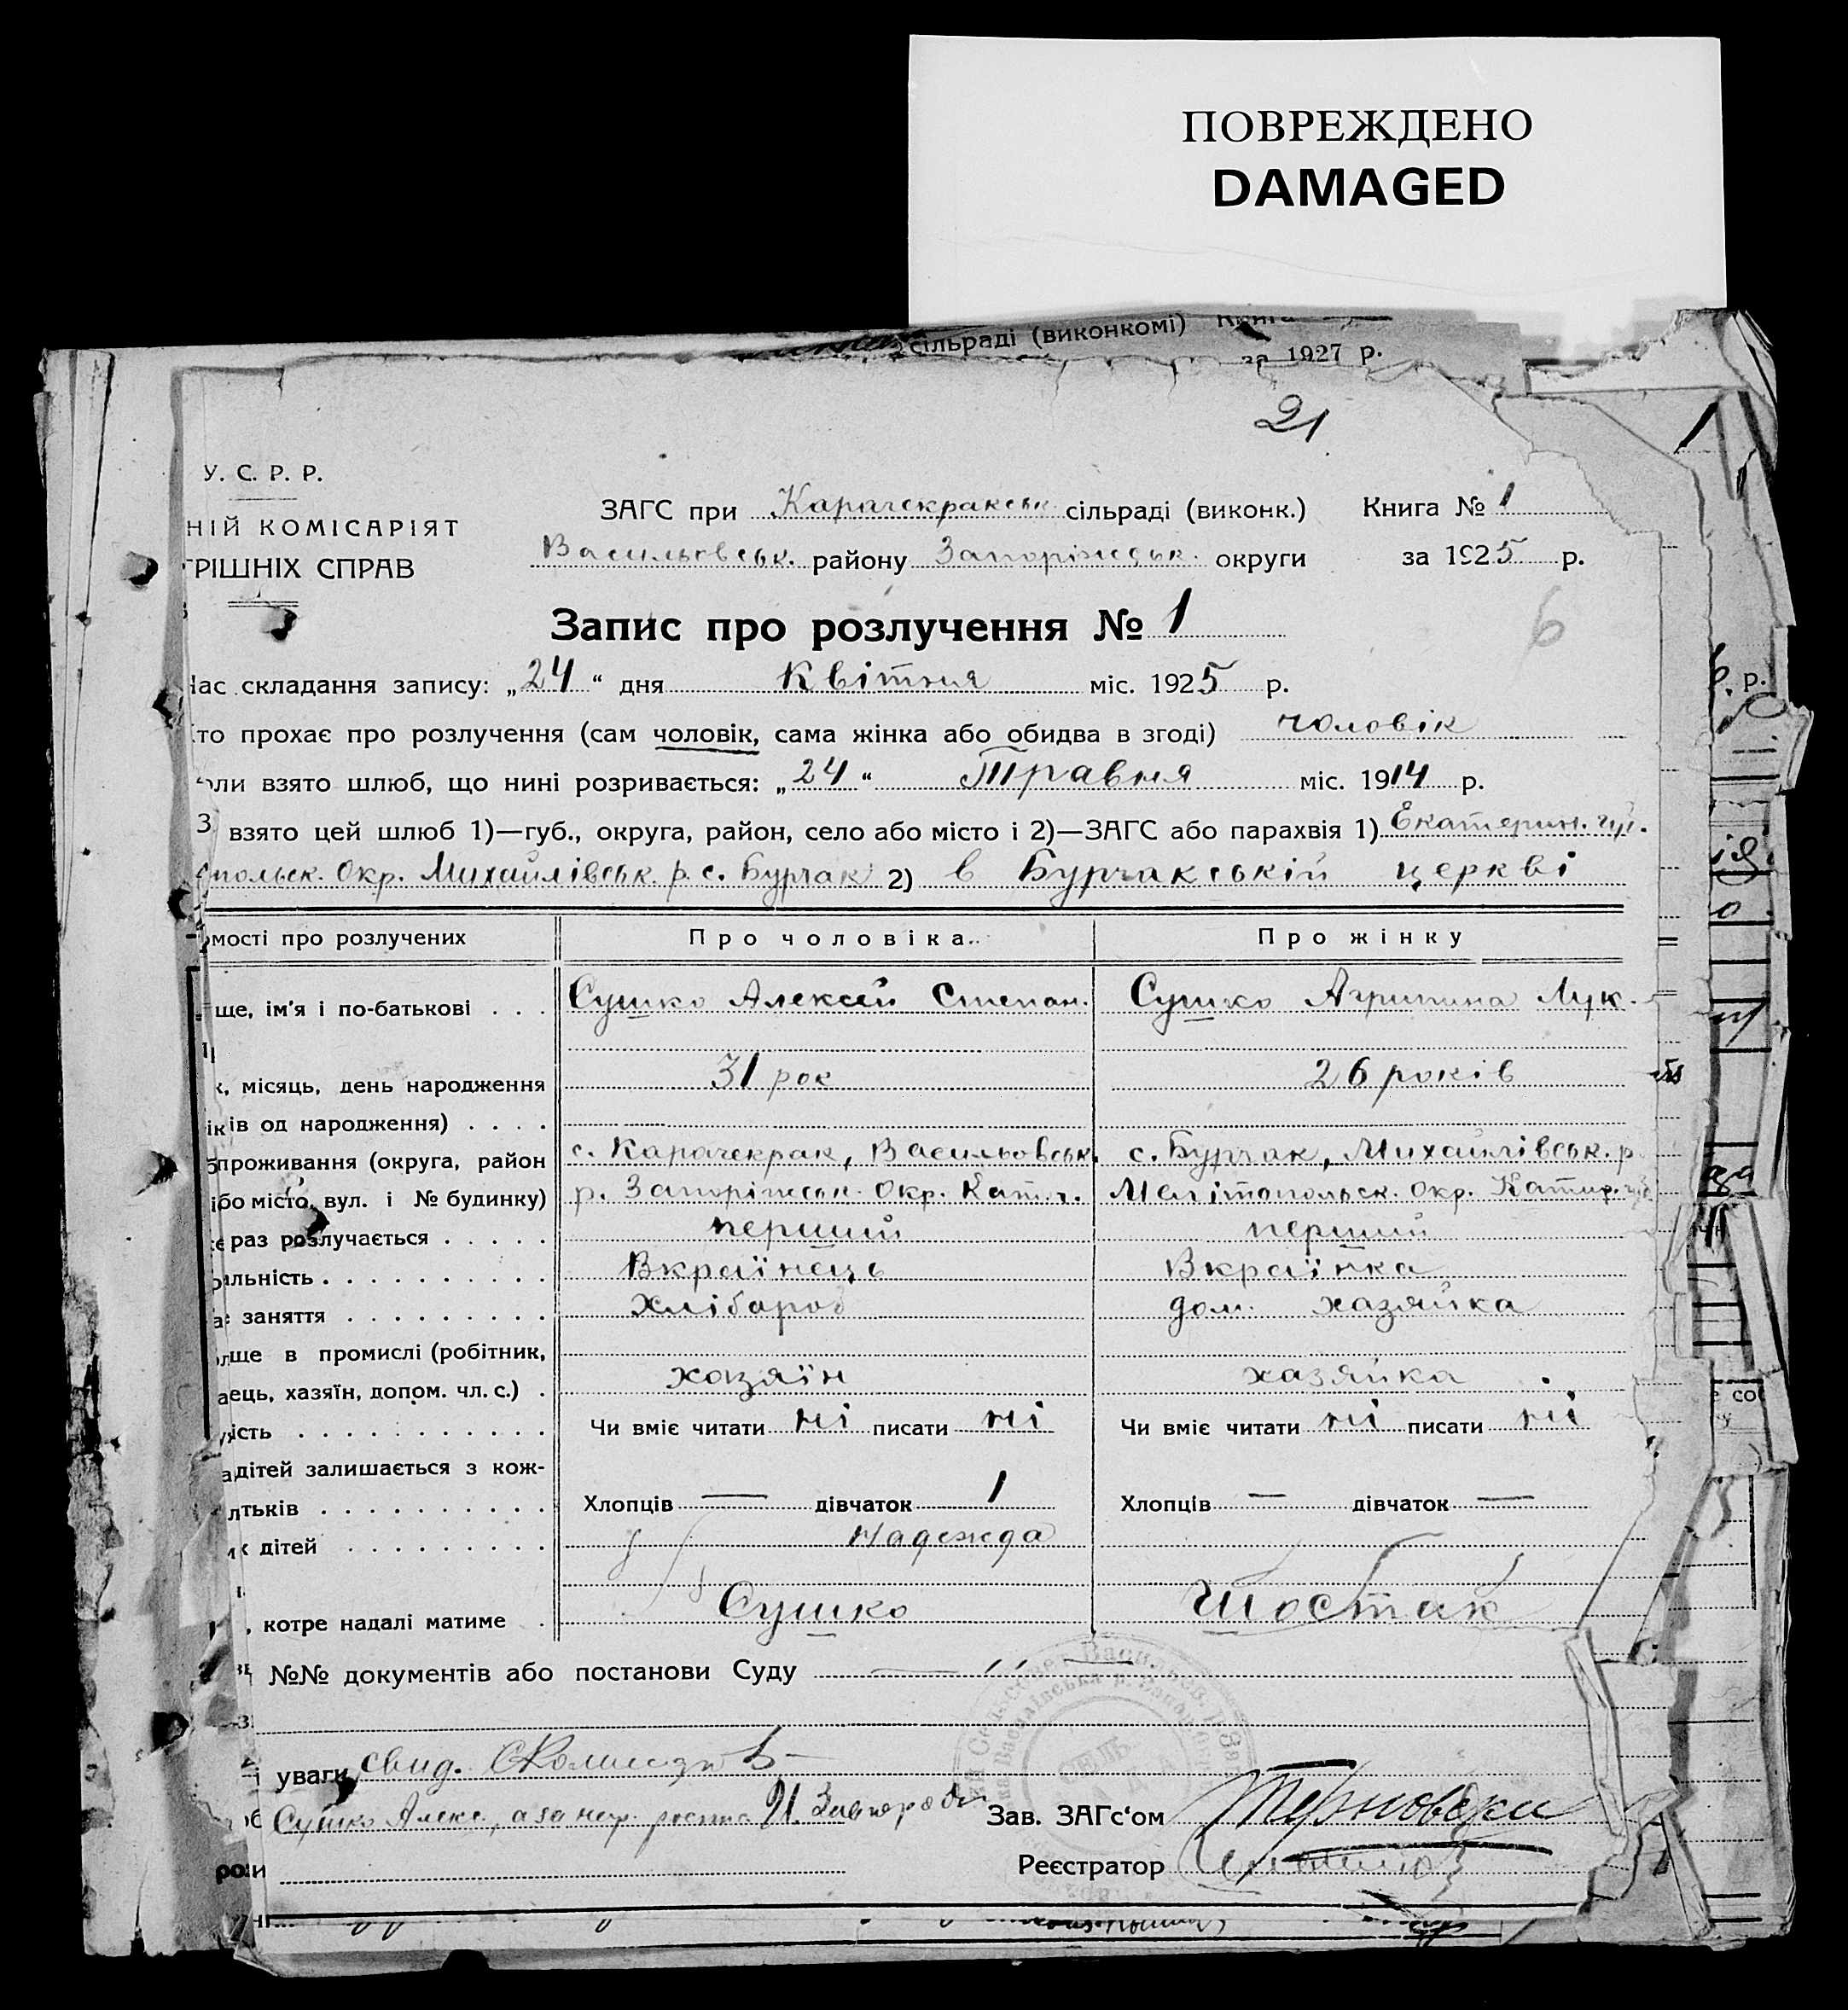 ПОВРЕЖДЕНО
DAMAGED
сільраді (виконкомі) Книга
за 1927 р.
21
У. С. Р. Р.
НІЙ КОМІСАРІЯТ
ТРІШНІХ СПРАВ
ЗАГС при Карачекракськ сільраді (виконк.) Книга № 1
Васильєвськ. району Запоріжськ. округи за 1925 р.
Запис про розлучення № 1
6
Час складання запису: „24" дня Квітня міс. 1925 р.
то прохає про розлучення (сам чоловік, сама жінка або обидва в згоді) чоловік
оли взято шлюб, що нині розривається: „24" Травня міс. 1914 р.
взято цей шлюб 1)—губ., округа, район, село або місто і 2)—ЗАГС або парахвія 1) Екатерин. губ.
польск. Окр. Михайлівськ. р. с. Бурчак 2) в Бурчакській церкві
омості про розлучених Про чоловіка. Про жінку
ще, ім'я і по-батькові . . . Сушко Алексей Степан. Сушко Агрипина Лук.
к, місяць, день народження 31 рок 26 років
ків од народження) . . . .
проживання (округа, район с. Карачекрак, Васильовськ. с. Бурчак, Михайлівськ. р.
або місто, вул. і № будинку) р. Запоріжськ. Окр. Кат. г. Мелітопольск. Окр. Катир. губ.
раз розлучається . . . . . перший перший
альність . . . . . . . . . . Вкраїнець Вкраїнка
заняття . . . . . . . . . Хлібароб дом. хазяйка
ще в промислі (робітник,
аець, хазяїн, допом. чл. с.) . хазяїн хазяйка
ість . . . . . . . . . . . Чи вміє читати ні писати ні Чи вміє читати ні писати ні
дітей залишається з кож-
тьків . . . . . . . . . . Хлопців — дівчаток 1 Хлопців — дівчаток —
дітей . . . . . . . . . Надежда
, котре надалі матиме . Сушко Шостак
№№ документів або постанови Суду — " —
уваги свид.
Сушко Алекс., а за негр. роспис И. Завгородн
Зав. ЗАГс'ом Терновски
Реєстратор